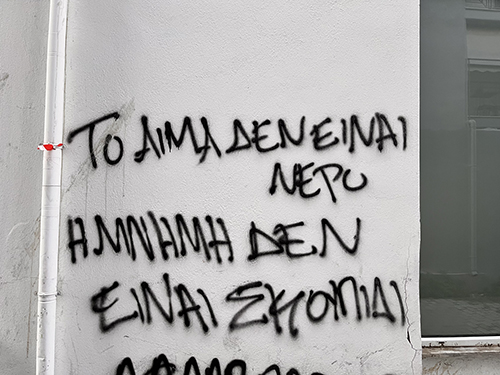 ΤΟ ΑΙΜΑ ΔΕΝ ΕΙΝΑΙ
ΝΕΡΟ
Η ΜΝΗΜΗ ΔΕΝ
ΕΙΝΑΙ ΣΚΟΥΠΙΔΙ